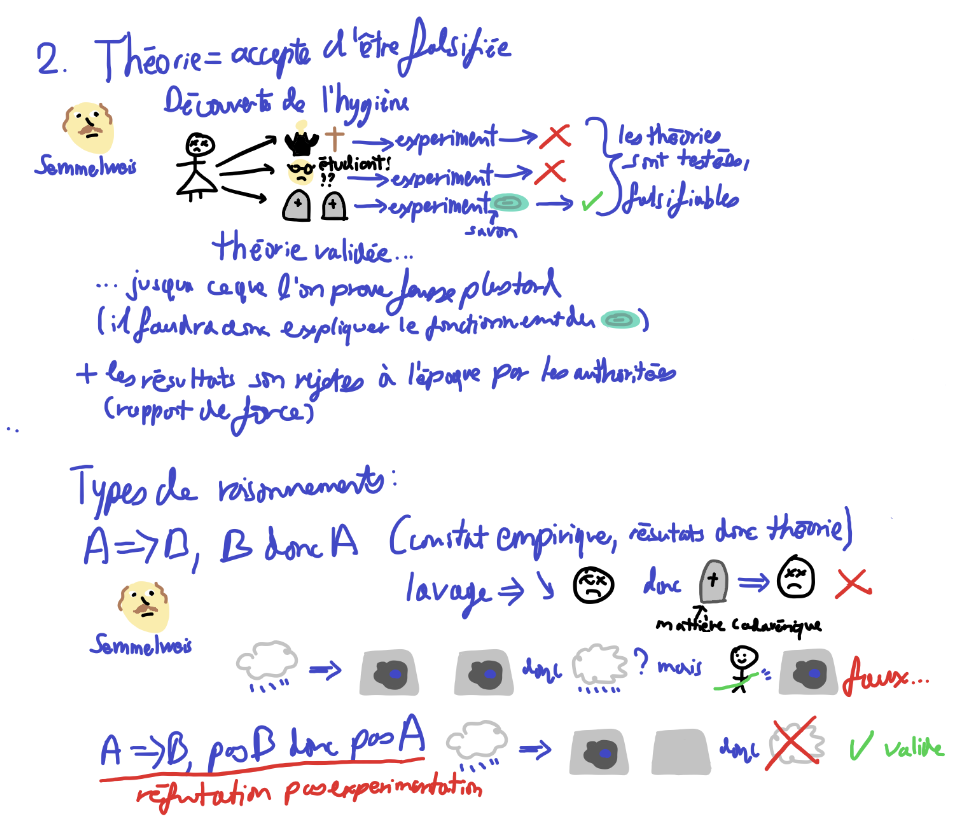 2. Théorie = accepte d'être falsifiée
Découverte de l'hygiène
Semmelweis
experiment
étudiant!
??
experiment
experiment
savon
les théories
sont testées,
falsifiables
théorie validée...
... jusqu'a ce que l'on prouve fausse plus tard
(il faudra donc expliquer le fonctionnement du )
+ les résultats son rejetés à l'époque par les authoritées
(rapport de force)
..
Types de raisonnements:
A => B, B donc A (constat empirique, résutats donc théorie)
lavage => ↘ donc =>
matière cadavérique
Semmelweis
=> donc ? mais faux...
A => B, pas B donc pas A => donc ✓ valide
réfutation pas experimentation